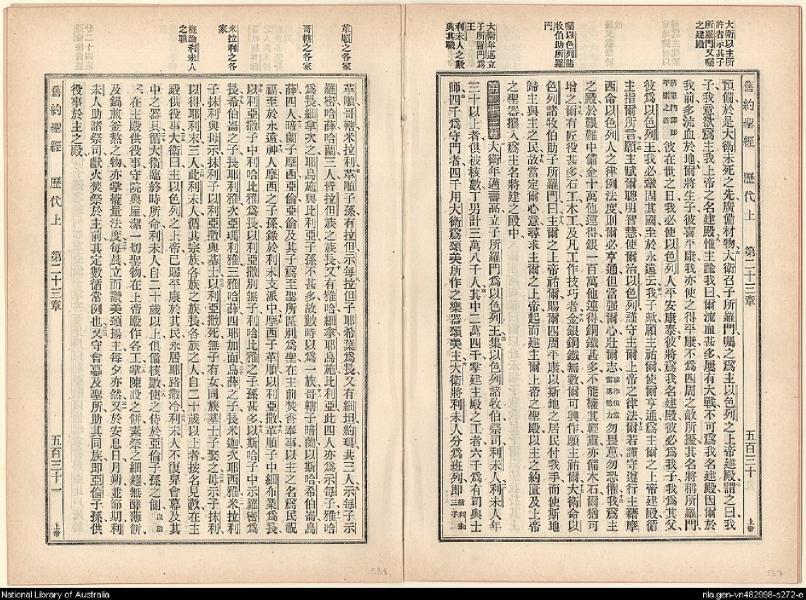 大衛以主所
許者示其子
所羅門又囑
之建殿
囑以色列諸
牧伯助所羅
門
大衛年邁立
子所羅門爲
王
利未人之數
與其職
舊約聖經 歷代上 第二十三章 五百三十
預備於是大衛未死之先廣備材物大衛召子所羅門囑之爲主以色列之上帝建殿謂之曰我
子我意欲爲主我上帝之名建殿惟主諭我曰爾流血甚多屢有大戰不可爲我名建殿因爾於
我前多流血於地爾將生子彼喜平康我亦使之得平康不爲四周之敵所擾其名將稱所羅門
彼在世之日我必使以色列人平安康泰彼將爲我名建殿彼必爲我子我爲其父
彼爲以色列王我必鞏固其國至於永遠云我子歟願主祐爾使爾亨通爲主爾之上帝建殿循
主指爾所言願主賦爾聰明智慧使爾治以色列謹守主爾上帝之律法爾若謹守遵行主藉摩
西命以色列人之律例法度則爾必亨通但當強爾心壯爾志勿畏葸勿恐懼我爲主
之殿於艱難中備金十萬他連得銀一百萬他連得銅鐵甚多不能權其輕重亦備木石爾猶可
增之爾有匠役甚多石工木工及凡工作技巧者金銀銅鐵無數爾可興作願主祐爾大衛命以
色列諸牧伯助子所羅門曰主爾之上帝祐爾賜爾四周平康以斯地之居民付我手而使斯地
歸主與主之民故當定爾心意尋求主爾之上帝起而建主爾上帝之聖殿以主之約匱及上帝
之聖器攜入爲主名將建之殿中
第二十三章 大衛年邁壽高立子所羅門爲以色列王集以色列諸牧伯祭司利未人利未人年
三十以上者俱被核數丁男計三萬八千人其中二萬四千督建主殿之工者六千爲有司與士
師四千爲守門者四千用大衛爲頌美所作之樂器頌美主大衛將利未人分爲班列即
上帝
革順之各家
哥轄之各家
米拉利之各
家
概論利未人
之職
舊約聖經 歷代上 第二十三章 五百三十一
革順哥轄米拉利革順子孫有拉但示每拉但子耶希葉爲長又有細坦約珥共三人示每子示
羅密哈薛哈蘭三人皆拉但族之族長又有雅哈細拿耶烏施比利亞此四人亦爲示每子雅哈
爲長細拿次之耶烏施與比利亞子孫不甚多故數時以爲一族哥轄子暗蘭以斯哈希伯崙烏
薛四人暗蘭子摩西亞倫亞倫及其子爲至聖所區別爲聖在主前焚香奉事以主之名爲民祝
福至於永遠神人摩西之子孫錄於利未支派中摩西子革順以利亞撒革順子中細布業爲長
以利亞撒子中利哈比雅爲長以利亞撒別無子利哈比雅之子孫甚多以斯哈子中示羅密爲
長希伯崙之子長耶利雅次亞瑪利雅三雅哈薛四耶加面烏薛之子長米迦次耶西雅米拉利
子抹利與母示抹利子以利亞撒與基士以利亞撒死無子有女同族基士子娶之母示子抹利
以得耶利末三人此利未人循其宗族各族之長各族之人自二十歲與上者按名見數在主
殿供役事大衛曰主以色列之上帝已賜平康於其民永居耶路撒冷利未人不復舁會幕及其
中之器具循大衛臨終時所命利未人自二十歲以上俱備核數使之侍於亞倫子孫之側
在主殿供役事守院與屋潔一切聖物在上帝殿作各工掌陳設之餅素祭之細麵無酵薄餅
及鍋煎釜熬之物亦掌權量法度每晨立而讚美頌揚主每夕亦然又於安息日月朔並節期利
未人助諸祭司獻火焚祭於主前其定數循常例也又守會幕及聖所助其同族即亞倫子孫供
役事於主之殿
上帝
538
537
National Library of Australia
nla.gen-vn482998-s272-e